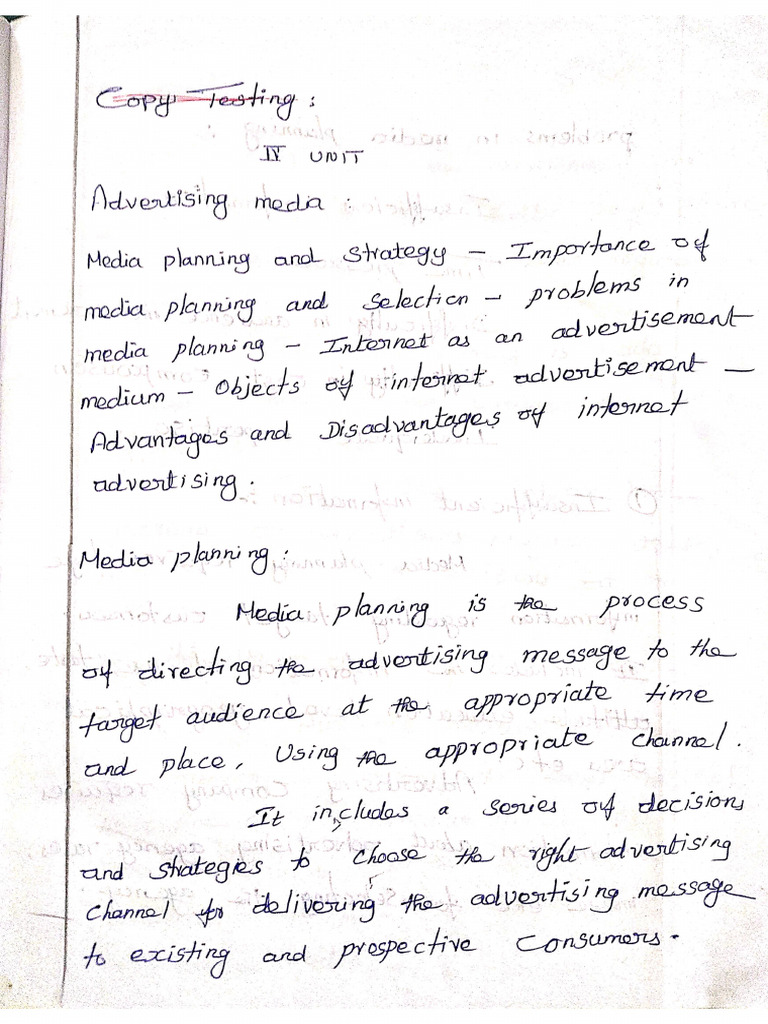 Copy Testing :
IV UNIT
Advertising media :
Media planning and Strategy - Importance of
media planning and Selection - problems in
media planning - Internet as an advertisement
medium - Objects of internet advertisement -
Advantages and Disadvantages of internet
advertising.
Media planning :
Media planning is the process
of directing the advertising message to the
target audience at the appropriate time
and place, Using the appropriate channel.
It includes a series of decisions
and strategies to choose the right advertising
channel for delivering the advertising message
to existing and prospective Consumers.